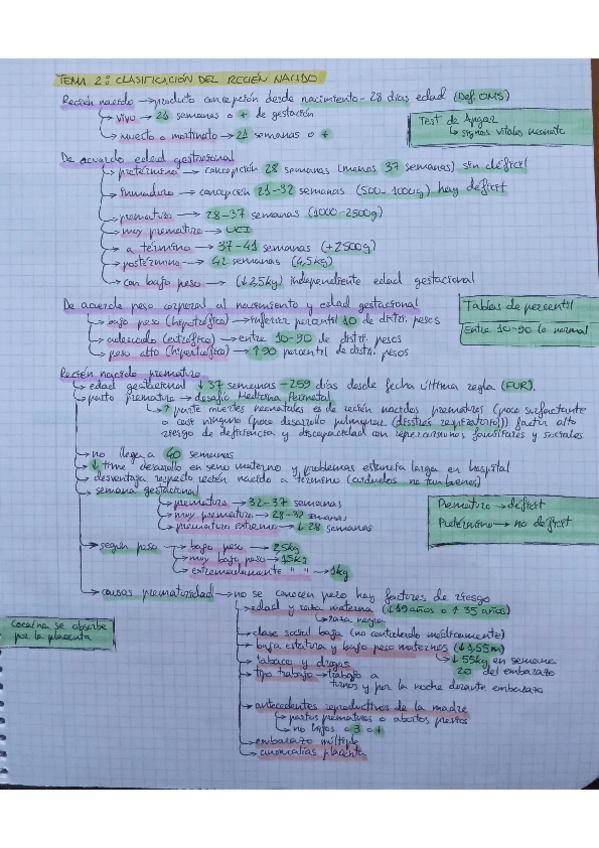 TEMA 2: CLASIFICACIÓN DEL RECIÉN NACIDO
Recién nacido → producto concepción desde nacimiento - 28 días edad (Def. OMS)
→ vivo → 21 semanas o + de gestación
→ muerto o mortinato → 21 semanas o +
Test de Apgar
↳ signos vitales neonato
De acuerdo edad gestacional
→ pretérmino → concepción 28 semanas (menos 37 semanas) sin déficit
→ inmaduro → concepción 21-32 semanas (500-1000g) hay déficit
→ prematuro → 28-37 semanas (1000-2500g)
→ muy prematuro → UCI
→ a término → 37-41 semanas (+2500g)
→ postérmino → 42 semanas (4,5kg)
→ con bajo peso → (↓2,5kg) independiente edad gestacional
De acuerdo peso corporal al nacimiento y edad gestacional
→ bajo peso (hipotrófico) → inferior percentil 10 de distr. pesos
→ adecuado (eutrófico) → entre 10-90 de distr. pesos
→ peso alto (hipertrófico) → ↑90 percentil de distr. pesos
Tablas de percentil
Entre 10-90 lo normal
Recién nacido prematuro
→ edad gestacional ↓ 37 semanas - 259 días desde fecha última regla (FUR).
→ parto prematuro → desafío Medicina Perinatal
↳ ? parte muertes neonatales es de recién nacidos prematuros (poco surfactante
o casi ninguno (poco desarrollo pulmonar (distrés respiratorio)) factor alto
riesgo de deficiencia y discapacidad con repercusiones familiares y sociales
→ no llega a 40 semanas
→ ↓ time desarrollo en seno materno y problemas estancia larga en hospital
→ desventaja respecto recién nacido a término (cuidados no tan buenos)
→ semana gestacional
→ prematuro → 32-37 semanas
→ muy prematuro → 28-32 semanas
→ prematuro extremo → ↓ 28 semanas
Prematuro → déficit
Pretérmino → no déficit
→ según peso → bajo peso → 2,5kg
→ muy bajo peso → 1,5kg
→ extremadamente " " → 1kg
→ causas prematuridad → no se conocen pero hay factores de riesgo
→ edad y raza materna (↓19 años o ↑ 35 años)
↳ raza negra
Cocaína se absorbe
por la placenta
→ clase social baja (no controlando médicamente)
→ baja estatura y bajo peso maternos (↓1,55m)
↳ ↓ 55kg en semana
20 del embarazo
→ tabaco y drogas
→ tipo trabajo → trabajo a
turnos y por la noche durante embarazo
→ antecedentes reproductivos de la madre
→ partos prematuros o abortos previos
→ no hijos o 3 o +
→ embarazo múltiple
→ anomalías placenta